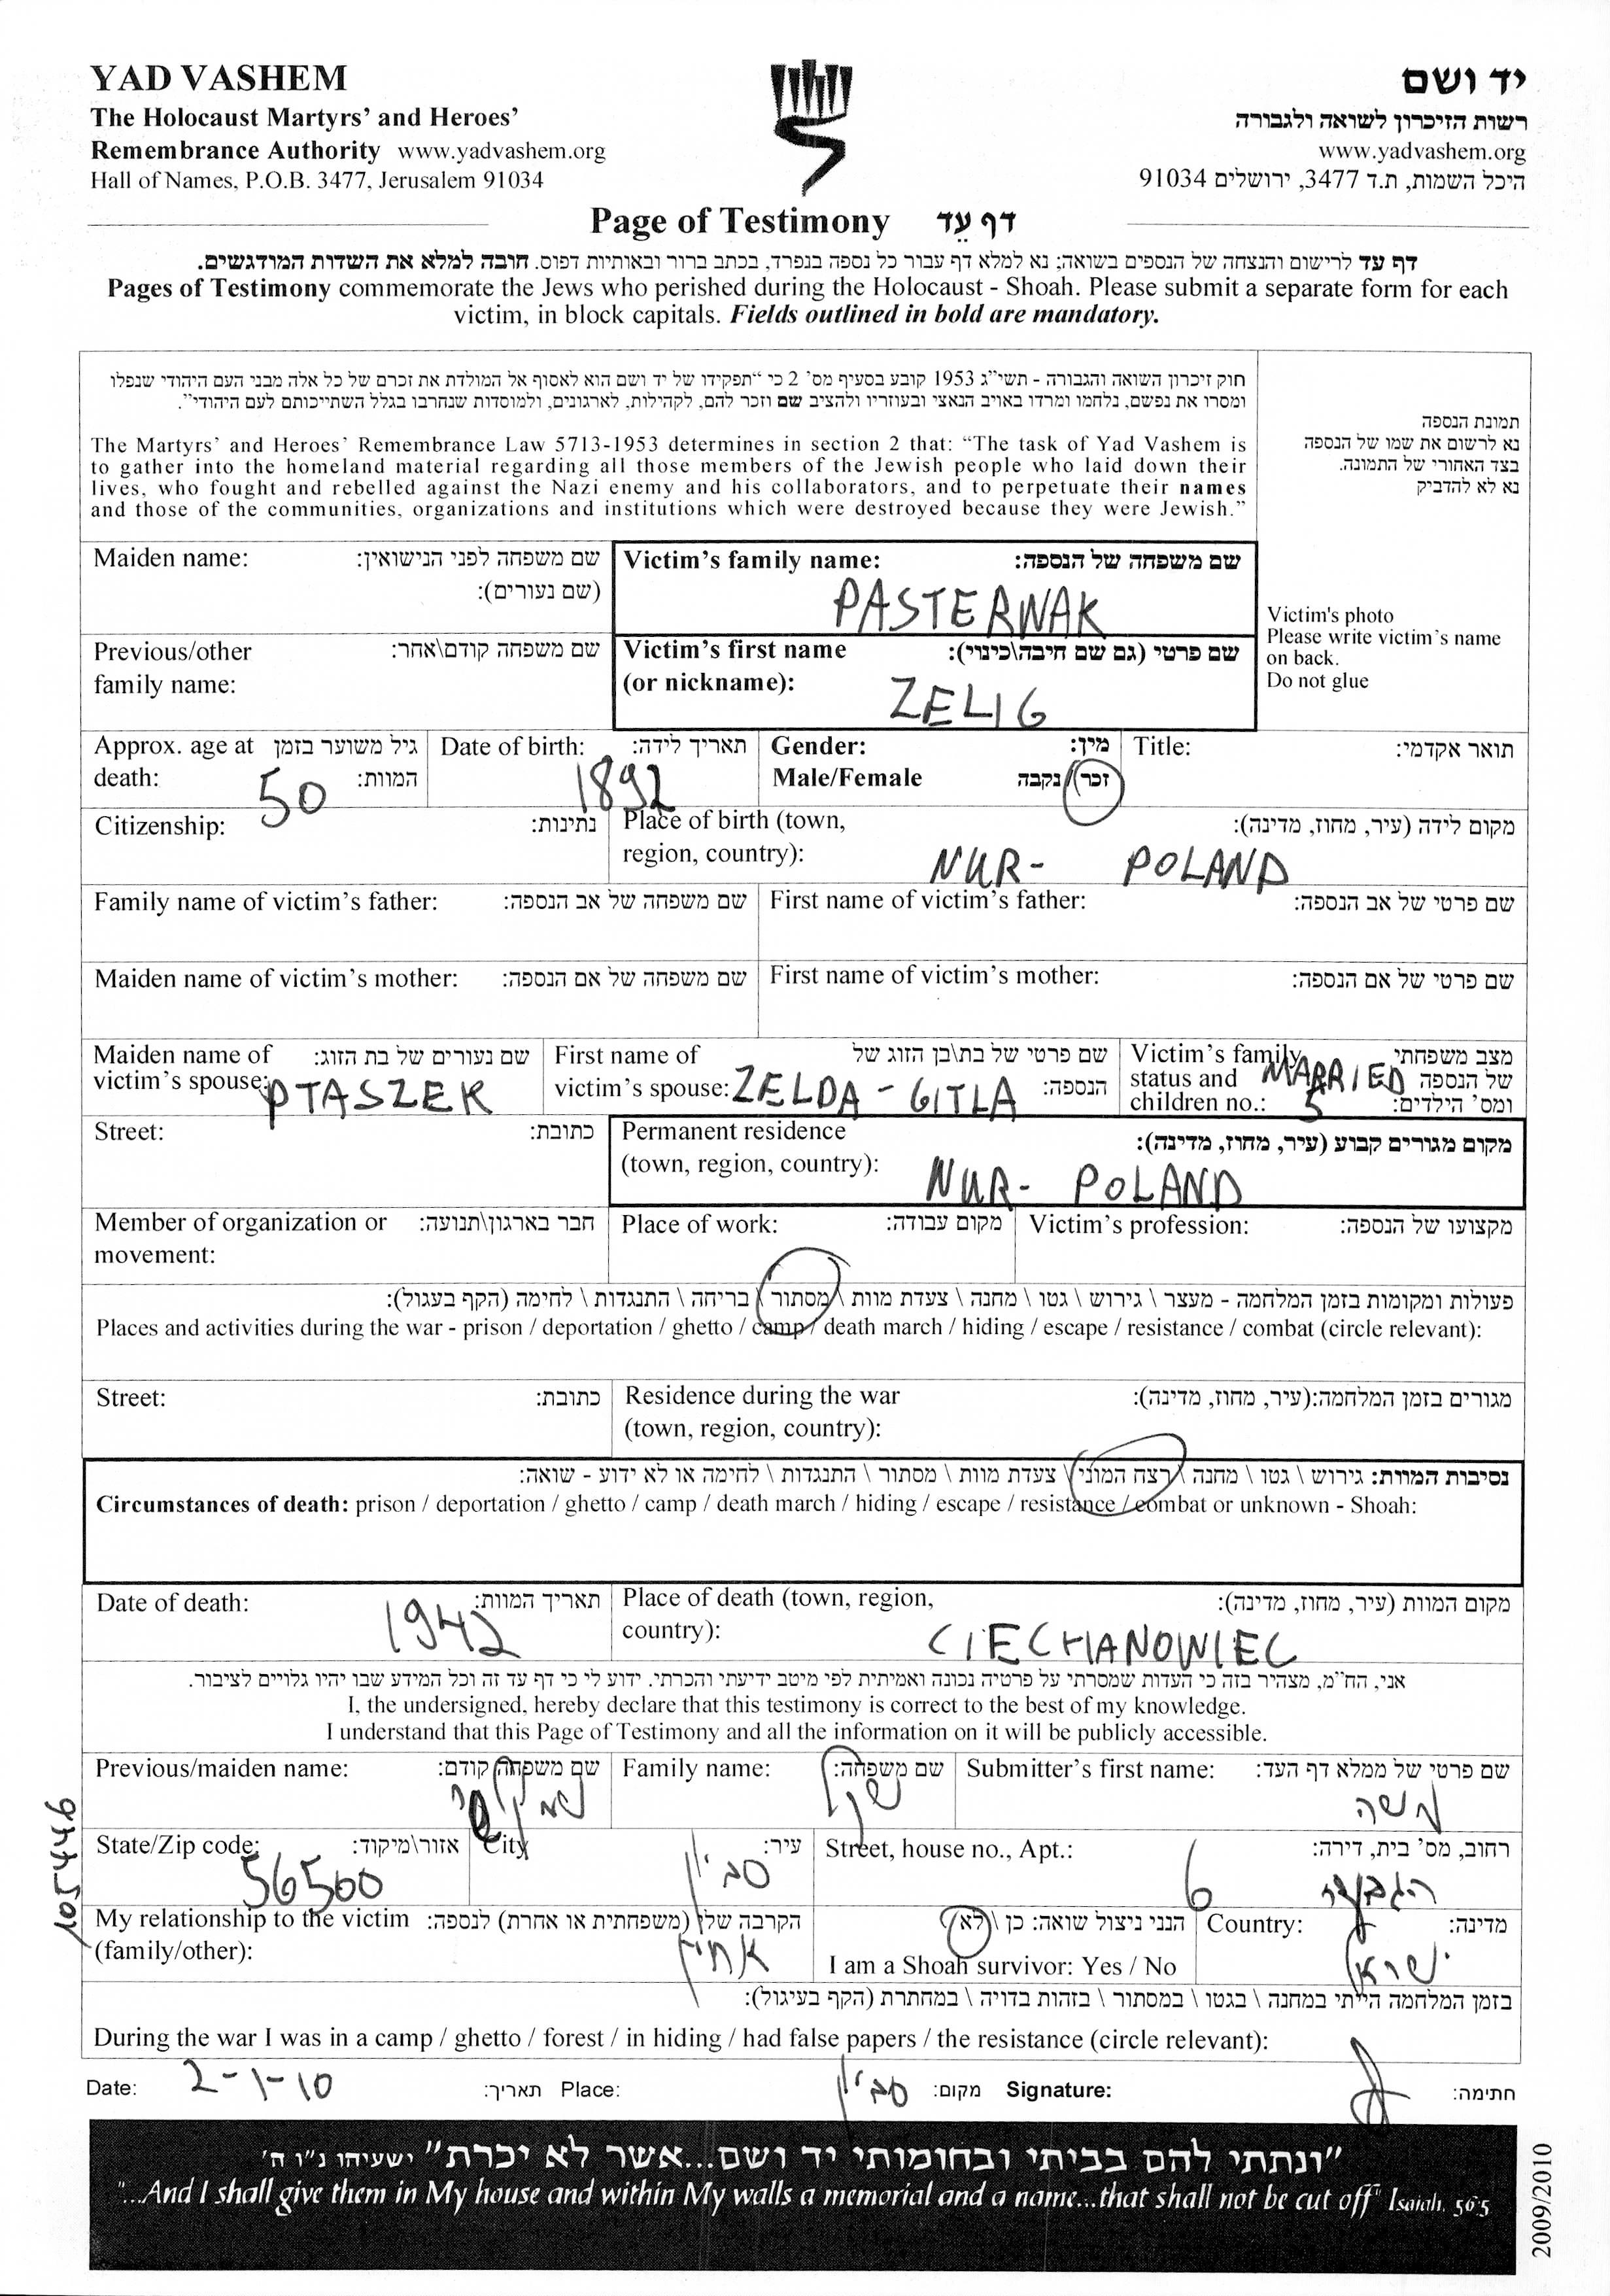 YAD VASHEM
The Holocaust Martyrs' and Heroes'
Remembrance Authority www.yadvashem.org
Hall of Names, P.O.B. 3477, Jerusalem 91034
יד ושם
רשות הזיכרון לשואה ולגבורה
www.yadvashem.org
היכל השמות, ת.ד 3477, ירושלים 91034
Page of Testimony דף עֵד
דף עד לרישום והנצחה של הנספים בשואה; נא למלא דף עבור כל נספה בנפרד, בכתב ברור ובאותיות דפוס. חובה למלא את השדות המודגשים.
Pages of Testimony commemorate the Jews who perished during the Holocaust - Shoah. Please submit a separate form for each
victim, in block capitals. Fields outlined in bold are mandatory.
חוק זיכרון השואה והגבורה - תשי"ג 1953 קובע בסעיף מס' 2 כי "תפקידו של יד ושם הוא לאסוף אל המולדת את זכרם של כל אלה מבני העם היהודי שנפלו
ומסרו את נפשם, נלחמו ומרדו באויב הנאצי ובעוזריו ולהציב שם וזכר להם, לקהילות, לארגונים, ולמוסדות שנחרבו בגלל השתייכותם לעם היהודי".
The Martyrs' and Heroes' Remembrance Law 5713-1953 determines in section 2 that: "The task of Yad Vashem is
to gather into the homeland material regarding all those members of the Jewish people who laid down their
lives, who fought and rebelled against the Nazi enemy and his collaborators, and to perpetuate their names
and those of the communities, organizations and institutions which were destroyed because they were Jewish."
תמונת הנספה
נא לרשום את שמו של הנספה
בצד האחורי של התמונה.
נא לא להדביק
Victim's photo
Please write victim's name
on back.
Do not glue
Maiden name: שם משפחה לפני הנישואין:
(שם נעורים):
Victim's family name: שם משפחה של הנספה:
PASTERNAK
Previous/other שם משפחה קודם\אחר:
family name:
Victim's first name שם פרטי (גם שם חיבה\כינוי):
(or nickname): ZELIG
Approx. age at גיל משוער בזמן
death: 50 המוות:
Date of birth: תאריך לידה:
1892
Gender: מין:
Male/Female זכר/ נקבה
Title: תואר אקדמי:
Citizenship: נתינות:
Place of birth (town, מקום לידה (עיר, מחוז, מדינה):
region, country): NUR- POLAND
Family name of victim's father: שם משפחה של אב הנספה:
First name of victim's father: שם פרטי של אב הנספה:
Maiden name of victim's mother: שם משפחה של אם הנספה:
First name of victim's mother: שם פרטי של אם הנספה:
Maiden name of שם נעורים של בת הזוג:
victim's spouse: PTASZEK
First name of שם פרטי של בת\בן הזוג של
victim's spouse: ZELDA - GITLA הנספה:
Victim's family מצב משפחתי
status and MARRIED של הנספה
children no.: 5 ומס' הילדים:
Street: כתובת:
Permanent residence מקום מגורים קבוע (עיר, מחוז, מדינה):
(town, region, country): NUR- POLAND
Member of organization or חבר בארגון\תנועה:
movement:
Place of work: מקום עבודה:
Victim's profession: מקצועו של הנספה:
פעולות ומקומות בזמן המלחמה - מעצר \ גירוש \ גטו \ מחנה \ צעדת מוות \ מסתור \ בריחה \ התנגדות \ לחימה (הקף בעגול):
Places and activities during the war - prison / deportation / ghetto / camp / death march / hiding / escape / resistance / combat (circle relevant):
Street: כתובת:
Residence during the war מגורים בזמן המלחמה:(עיר, מחוז, מדינה):
(town, region, country):
נסיבות המוות: גירוש \ גטו \ מחנה \ רצח המוני \ צעדת מוות \ מסתור \ התנגדות \ לחימה או לא ידוע - שואה:
Circumstances of death: prison / deportation / ghetto / camp / death march / hiding / escape / resistance / combat or unknown - Shoah:
Date of death: תאריך המוות:
1942
Place of death (town, region, מקום המוות (עיר, מחוז, מדינה):
country): CIECHANOWIEC
אני, הח"מ, מצהיר בזה כי העדות שמסרתי על פרטיה נכונה ואמיתית לפי מיטב ידיעתי והכרתי. ידוע לי כי דף עד זה וכל המידע שבו יהיו גלויים לציבור.
I, the undersigned, hereby declare that this testimony is correct to the best of my knowledge.
I understand that this Page of Testimony and all the information on it will be publicly accessible.
Previous/maiden name: שם משפחה קודם:
Family name: שם משפחה:
שקל
Submitter's first name: שם פרטי של ממלא דף העד:
משה
State/Zip code: אזור\מיקוד:
56500
City עיר:
סביון
Street, house no., Apt.: רחוב, מס' בית, דירה:
6
My relationship to the victim הקרבה שלי (משפחתית או אחרת) לנספה:
(family/other): אחיין
הנני ניצול שואה: כן \ לא
I am a Shoah survivor: Yes / No
Country: מדינה:
ישראל
בזמן המלחמה הייתי במחנה \ בגטו \ במסתור \ בזהות בדויה \ במחתרת (הקף בעיגול):
During the war I was in a camp / ghetto / forest / in hiding / had false papers / the resistance (circle relevant):
Date: 2-1-10 תאריך:
Place: סביון מקום:
Signature: חתימה:
"ונתתי להם בביתי ובחומותי יד ושם...אשר לא יכרת" ישעיהו נ"ו ה'
"...And I shall give them in My house and within My walls a memorial and a name...that shall not be cut off" Isaiah, 56:5
2009/2010